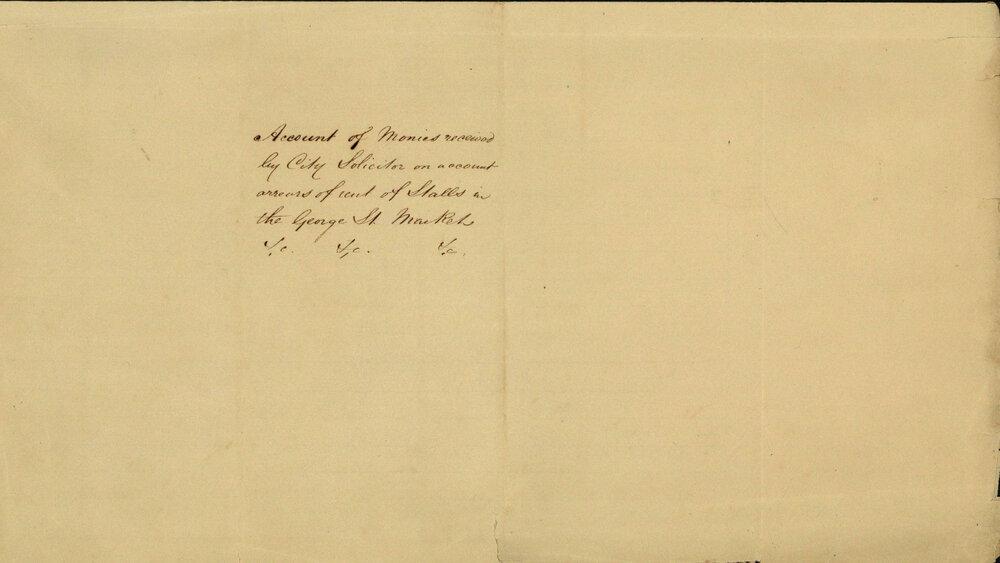 Account of Monies received
by City Solicitor on account
arrears of rent of Stalls in
the George St. Market
&c. &c. &c.